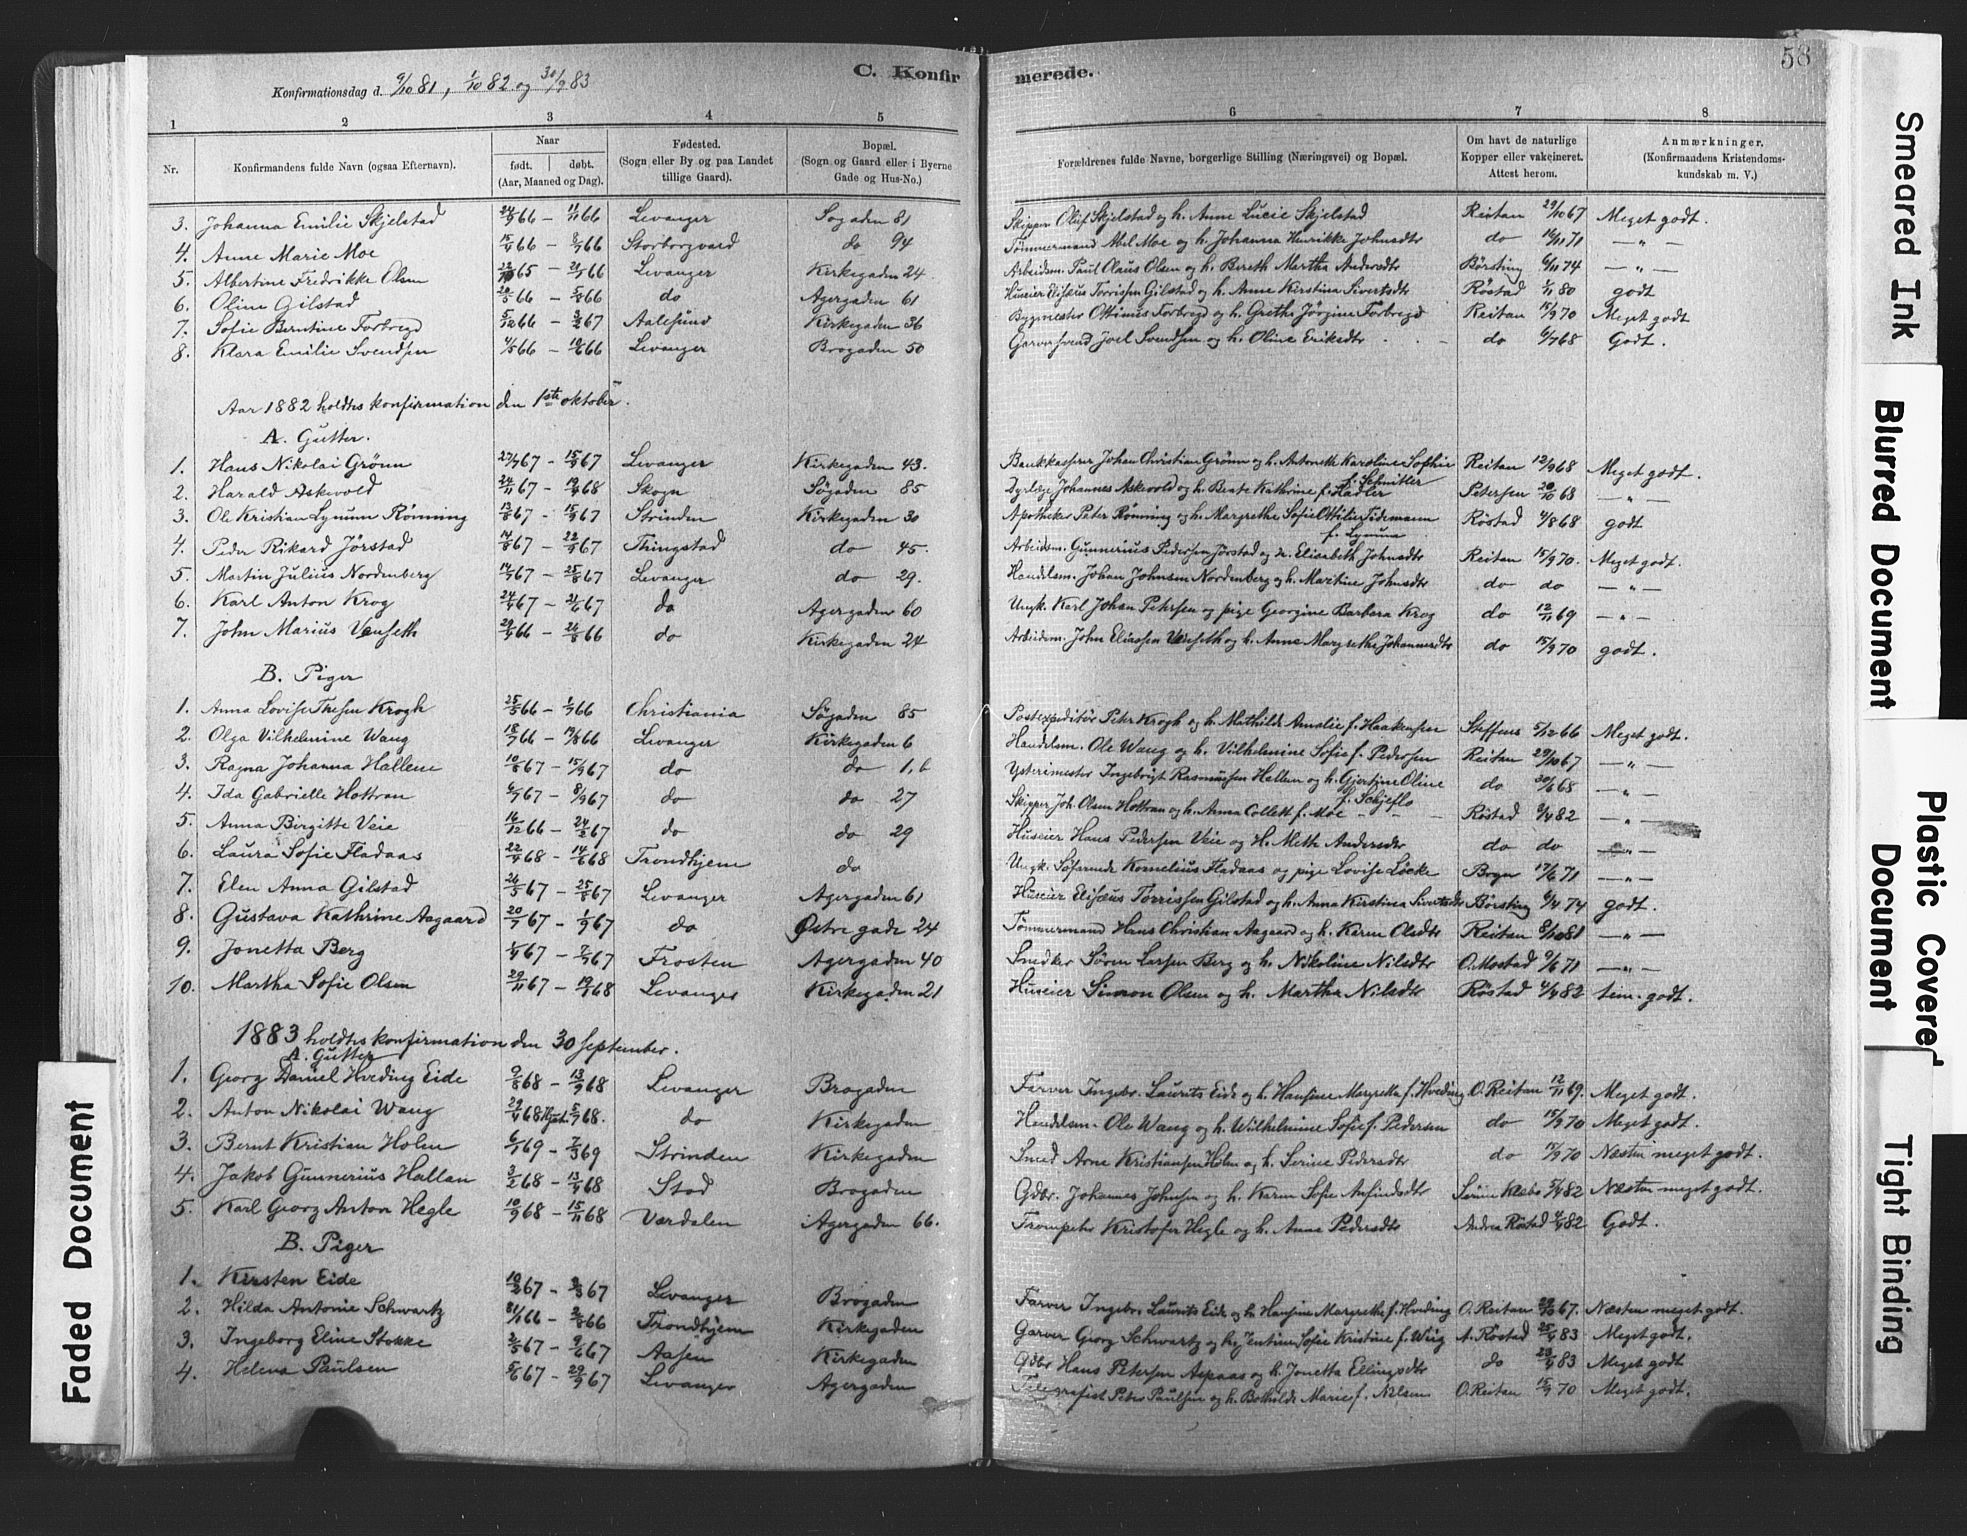 C. Konfirmerede.
58
Konfirmationsdag d. 9/10 81, 1/10 82 og 30/9 83
1 2 3 4 5 6 7 8
Nr. Konfirmandens fulde Navn (ogsaa Efternavn). Naar født. døbt. (Aar, Maaned og Dag). Fødested. (Sogn eller By og paa Landet tillige Gaard). Bopæl. (Sogn og Gaard eller i Byerne Gade og Hus-No.) Forældrenes fulde Navne, borgerlige Stilling (Næringsvei) og Bopæl. Om havt de naturlige Kopper eller vakcineret. Attest herom. Anmærkninger. (Konfirmandens Kristendomskundskab m. V.)
3. Johanna Emilie Skjelstad 24/9 66 – 11/11 66 Levanger Søgaden 81 Skipper Oluf Skjelstad og h. Anne Lucie Skjelstad Reitan 29/10 67 Meget godt.
4. Anne Marie Moe 15/4 66 – 8/7 66 Storborgvard do 94 Tømmermand Abel Moe og h. Johanna Henrikke Johnsdtr do 16/11 71 — „ —
5. Albertine Fredrikke Olsen 65 – 21/1 66 Levanger Kirkegaden 24 Arbeidsm. Paul Olaus Olsen og h. Bereth Martha Andersdtr Børsting 6/11 74 — „ —
6. Oline Gilstad 20/5 66 – 5/8 66 do Agergaden 61 Huseier Elisæus Torrissen Gilstad og h. Anne Kirstina Sivertsdtr Røstad 1/11 80 godt
7. Sofie Berntine Forbregd 5/12 66 – 3/2 67 Aalesund Kirkegaden 36 Bygmester Ottinus Forbregd og h. Grethe Jørgine Forbregd Reitan 15/9 70 Meget godt
8. Klara Emilie Svendsen 4/5 66 – 10/6 66 Levanger Brogaden 50 Garversvend Joel Svendsen og h. Oline Eriksdtr do 6/7 68 Godt.
Aar 1882 holdtes konfirmation den 1ste oktober.
A. Gutter.
1. Hans Nikolai Grönn 27/7 67 – 15/9 67 Levanger Kirkegaden 43. Bankkasserer Johan Christian Grönn og h. Antonette Karoline Sophie f. Schnitler Reitan 12/9 68 Meget godt.
2. Harald Askevold 24/11 67 – 19/4 68 Skogn Søgaden 85 Dyrlæge Johannes Askevold og h. Beate Kathrine f. Hadler Petersen 20/10 68 — „ —
3. Ole Kristian Lynum Rønning 13/8 67 – 15/9 67 Strinden Kirkegaden 30 Apotheker Peter Rønning og h. Margrethe Sofie Ottilie Tidemann f. Lynum Røstad 4/8 68 godt
4. Peder Rikard Jørstad 14/8 67 – 22/9 67 Thingstad do 45. Arbeidsm. Gunnerius Pedersen Jørstad og h. Elisabeth Johnsdtr Reitan 15/9 70. Meget godt.
5. Martin Julius Nordenberg 14/7 67 – 25/8 67 Levanger do 29. Handelsm. Johan Johnsen Nordenberg og h. Martine Johnsdtr do do — „ —
6. Karl Anton Krog 24/4 67 – 21/6 67 do Agergaden 60 Ungk. Karl Johan Petersen og pige Georgine Barbara Krog do 12/11 69 — „ —
7. John Marius Venseth 29/4 66 – 26/8 66 do Kirkegaden 24 Arbeidsm. John Eliassen Venseth og h. Anne Margrethe Johannesdtr do 15/9 70 godt.
B. Piger
1. Anna Lovise Thesen Krogh 25/5 66 – 1/7 66 Christiania Søgaden 85 Postexpeditör Petr Krogh og h. Mathilde Amalie f. Haakensen Steffens 5/12 66 Meget godt.
2. Olga Vilhelmine Wang 18/7 66 – 19/8 66 Levanger Kirkegaden 6 Handelsm. Ole Wang og h. Vilhelmine Sofie f. Pedersen Reitan 29/10 67 — „ —
3. Ragna Johanna Hallem 10/8 67 – 15/9 67 do do 1,b Ysterimester Ingebrigt Rasmussen Hallem og h. Gjertine Oline f. Schjeflo do 30/6 68 — „ —
4. Ida Gabrielle Hottran 6/7 67 – 8/9 67 do do 27 Skipper Joh. Olsen Hottran og h. Anna Collett f. Moe Røstad 3/4 82 — „ —
5. Anna Birgitte Veie 16/12 66 – 24/2 67 do do 29 Huseier Hans Pedersen Veie og H. Mette Andersdtr do do — „ —
6. Laura Sofie Fladaas 22/4 68 – 14/6 68 Trondhjem do Ungk. Søfarende Kornelius Fladaas og pige Lovise Löcke Bogn 17/6 71 — „ —
7. Elen Anna Gilstad 26/5 67 – 25/8 67 Levanger Agergaden 61 Huseier Elisæus Torrissen Gilstad og h. Anna Kirstina Sivertsdtr Børsting 9/4 74 godt.
8. Gustava Kathrine Aagaard 20/7 67 – 1/9 67 do Østregade 24 Tömmermand Hans Christian Aagaard og h. Karen Olsdtr Reitan 9/10 81 — „ —
9. Jonetta Berg 1/4 67 – 7/7 67 Frosten Agergaden 40 Snedker Søren Larsen Berg og h. Nikoline Nilsdtr O. Mostad 9/6 71 — „ —
10. Martha Sofie Olsen 29/11 67 – 19/1 68 Levanger Kirkegaden 21 Huseier Simon Olsen og h. Martha Nilsdtr Röstad 4/4 82 tem. godt.
1883 holdtes konfirmation den 30 september.
A. Gutter
1. Georg Daniel Hveding Eide 9/8 68 – 13/9 68 Levanger Brogaden Farver Ingebr. Laurits Eide og h. Hansine Margretha f. Hveding O. Reitan 12/11 69. Meget godt.
2. Anton Nikolai Wang 29/4 68 Hjed. 5/7 68. do Kirkegaden Handelsm. Ole Wang og h. Wilhelmine Sofie f. Pedersen do 15/9 70 Meget godt.
3. Bernt Kristian Holm 6/1 69 – 7/3 69 Strinden Kirkegaden Smed Arne Kristiansen Holm og h. Serine Pedersdtr do 15/9 70 Næsten meget godt.
4. Jakob Gunnerius Hallan 3/2 68 – 13/4 68 Stod Brogaden Gdbr. Johannes Johnsen og h. Karen Sofie Arfindsdtr Klæbo 5/9 82 Næsten meget godt.
5. Karl Georg Anton Hegle 10/9 68 – 15/11 68 Værdalen Agergaden 66. Trompeter Kristofer Hegle og h. Anne Pedersdtr Andrea Röstad 4/4 82 Godt.
B. Piger
1. Kirsten Eide 10/2 67 – 3/3 67 Levanger Brogaden Farver Ingebr. Laurits Eide og h. Hansine Margrethe f. Hveding O. Reitan 29/10 67. Næsten meget godt.
2. Hilda Antonie Schwartz 31/1 66 – 2/8 66 Trondhjem Kirkegaden Garver Georg Schwartz og h. Jentine Sofie Kristine f. Wiig A. Röstad 25/4 83 Meget godt.
3. Ingeborg Eline Stokke 3/5 67 – 9/6 67 Aasen Kirkegaden Gdbr Hans Petersen Aspaas og h. Jonetta Ellingsdtr do 23/4 83 Meget godt
4. Helena Paulsen 5/6 67 – 29/9 67 Levanger Agergaden Telegrafist Peter Paulsen og h. Bothilde Marie f. Nilsen O. Reitan 15/9 70 Meget godt.
Smeared Ink
Blurred Document
Plastic Covered Document
Tight Binding
Faded Document